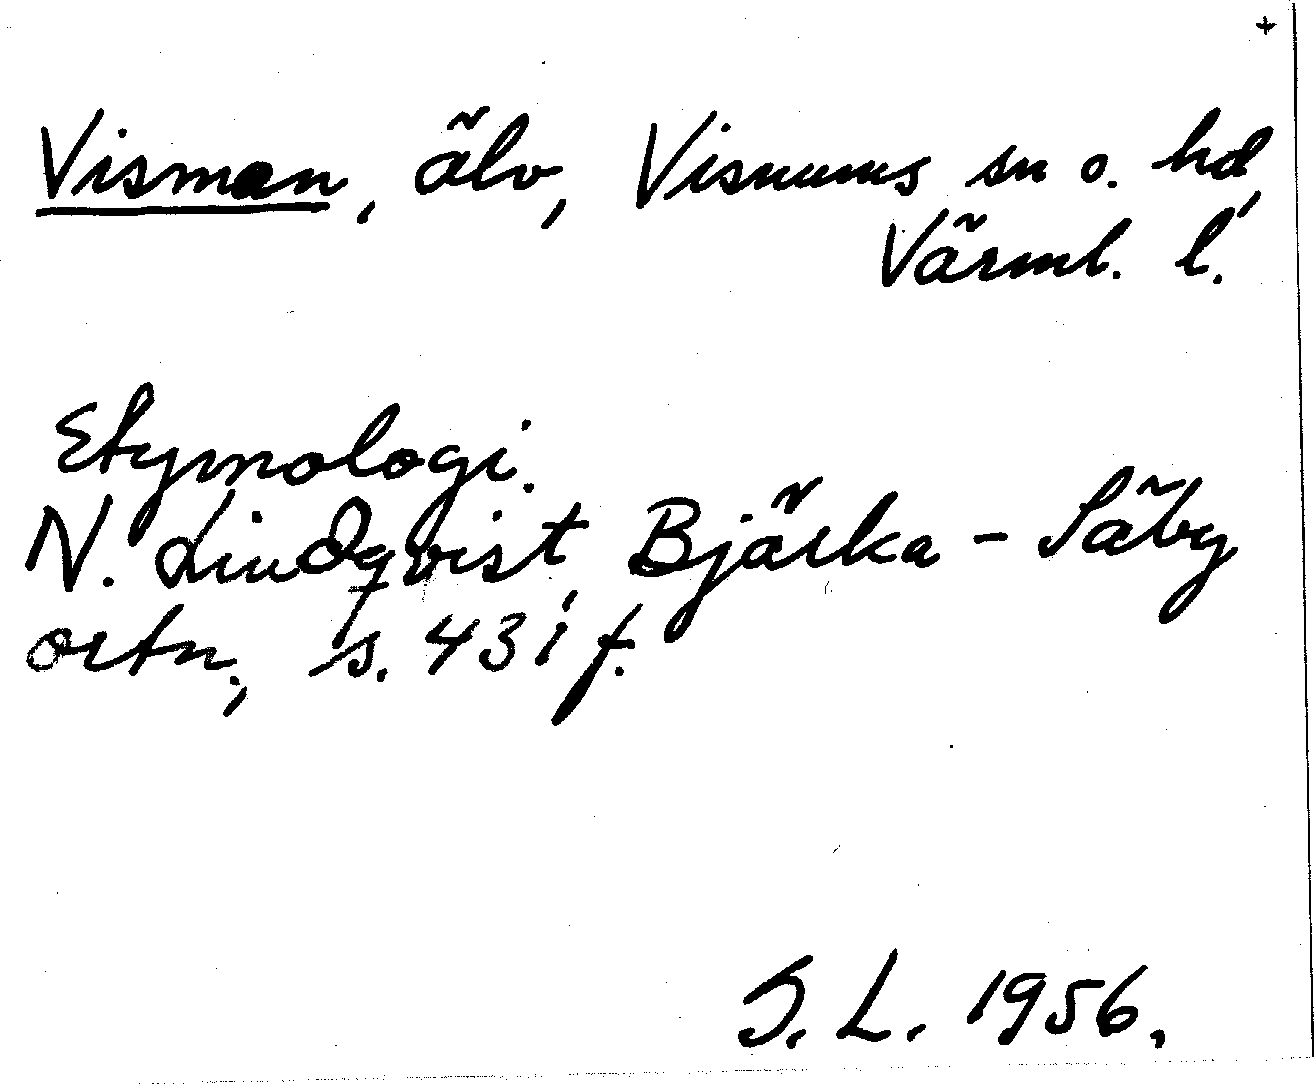 +
Visman, älv, Visnums sn o. hd,
Värml. l.
Etymologi.
N. Lindqvist, Bjärka-Säby
ortn., s. 431 f.
S. L. 1956.